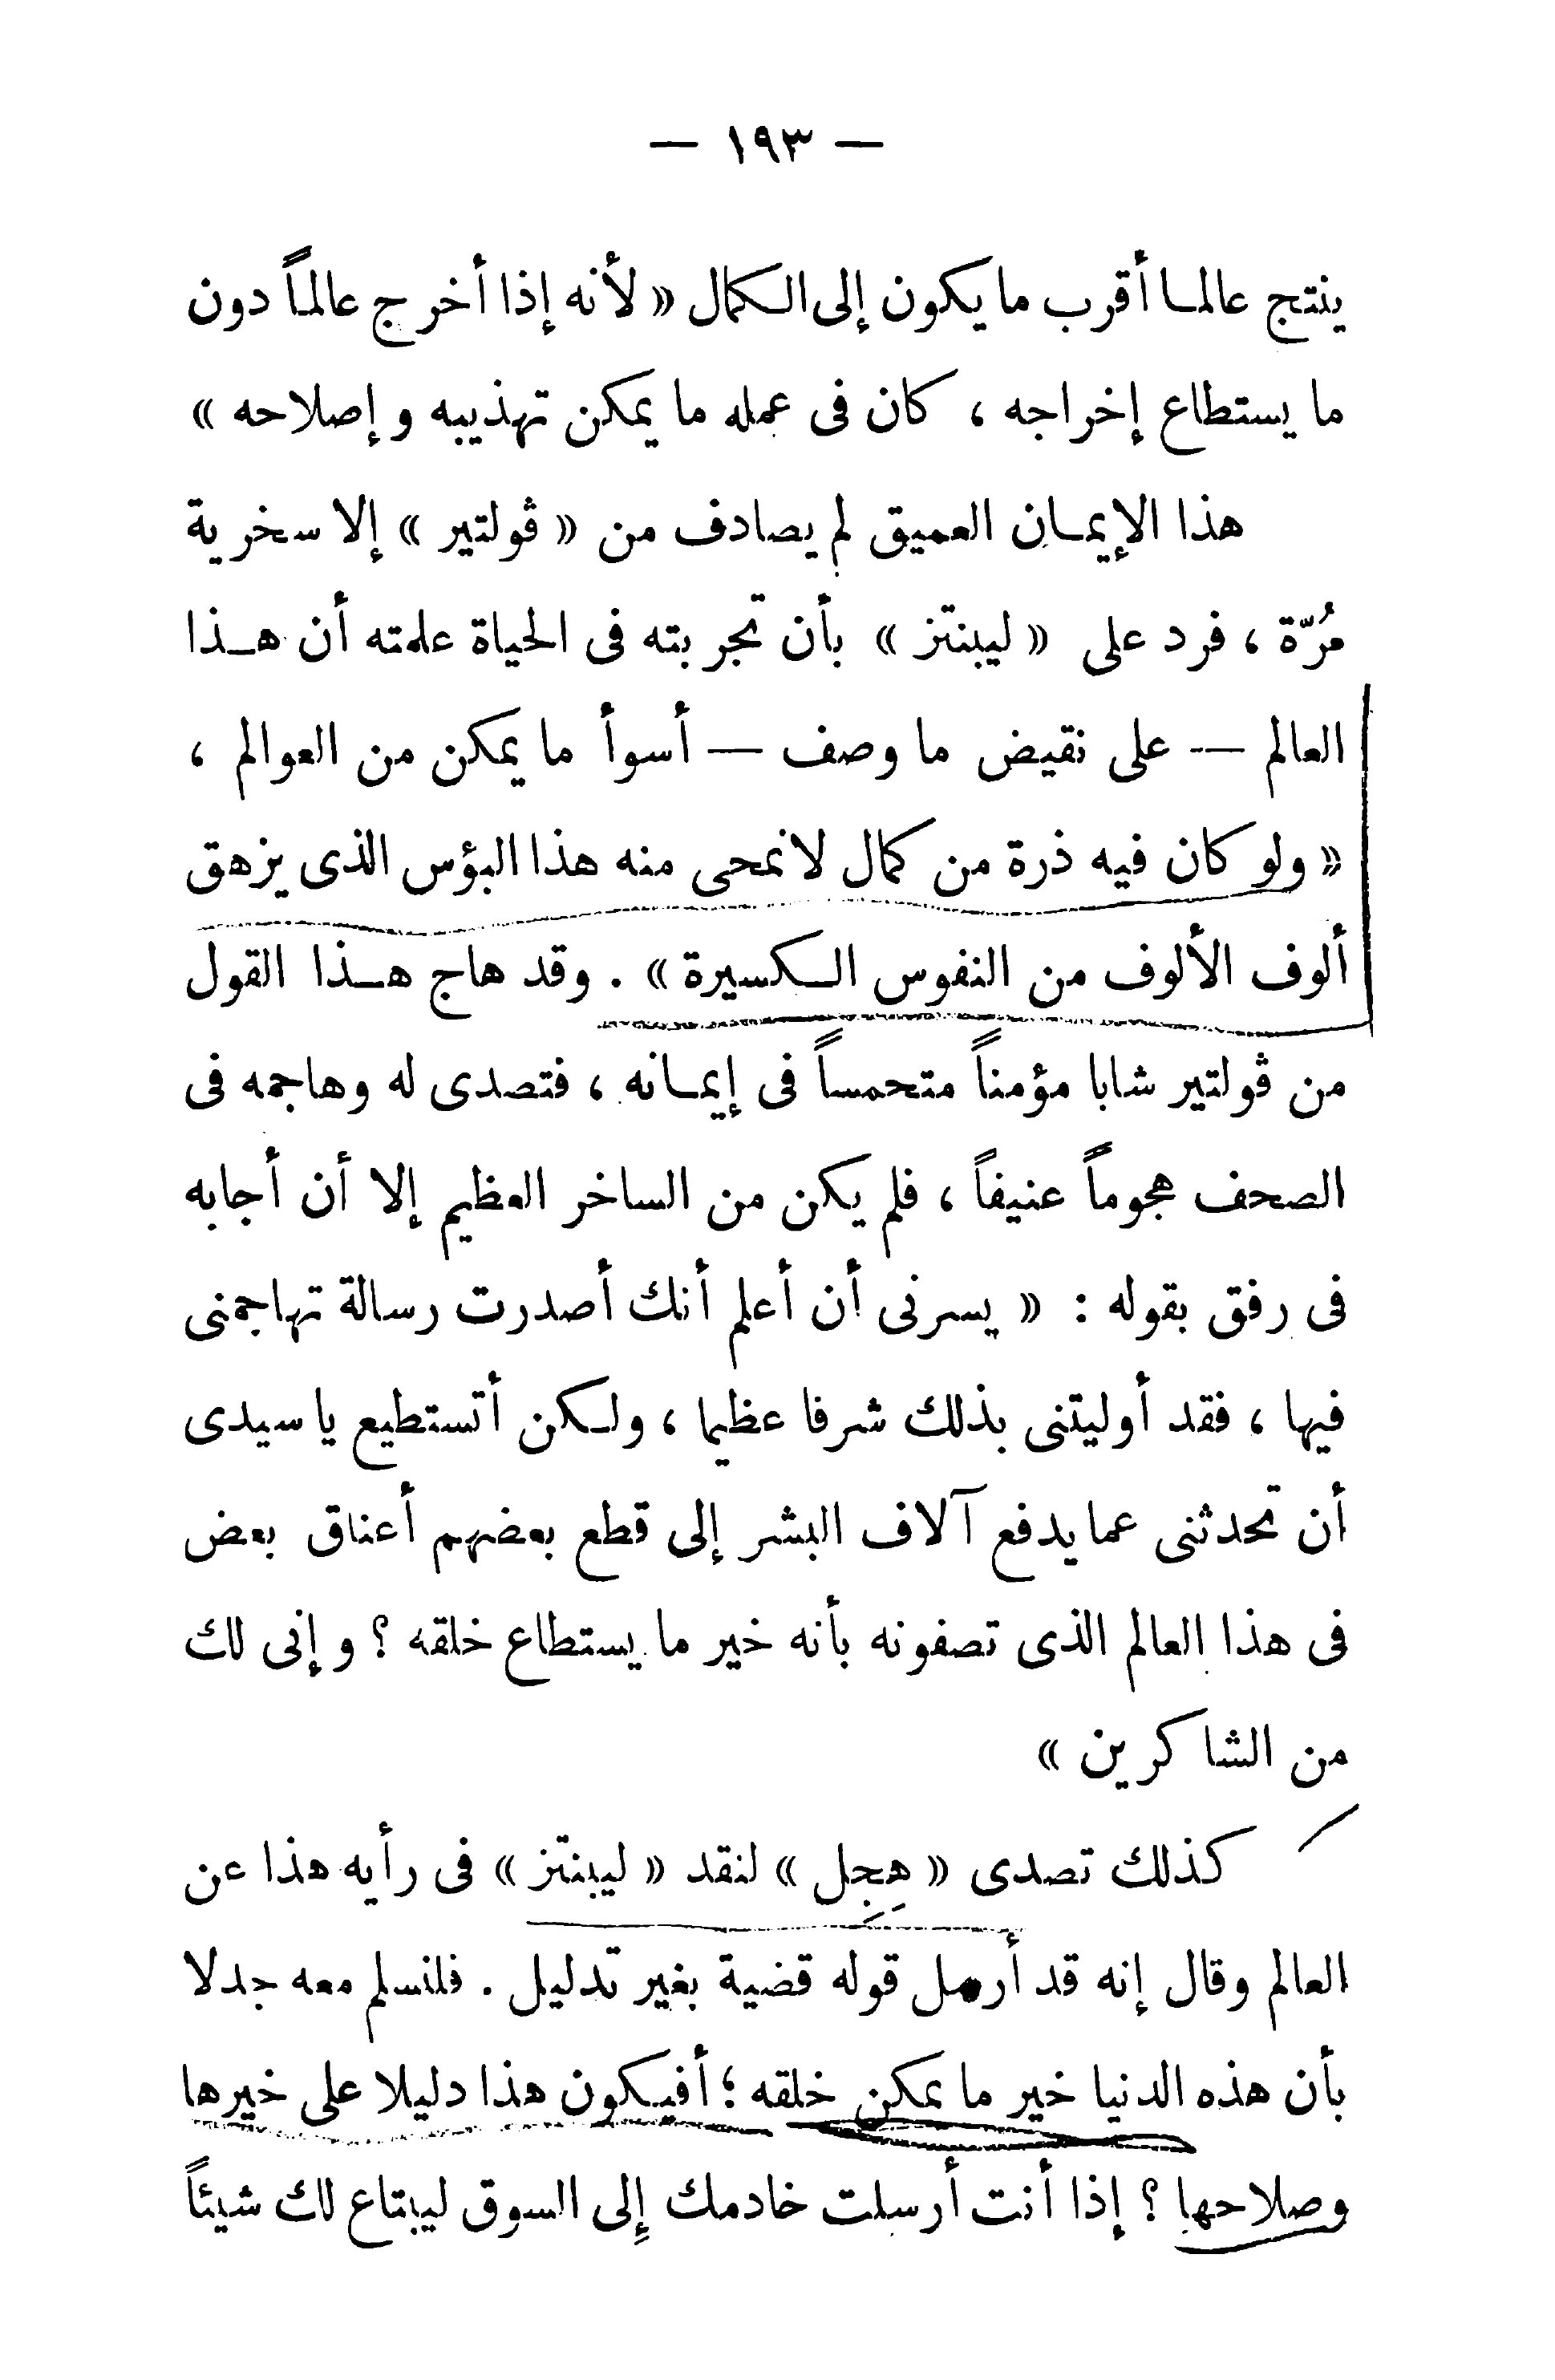 — ١٩٣ —
ينتج عالما أقرب ما يكون إلى الكمال « لأنه إذا أخرج عالماً دون
ما يستطاع إخراجه ، كان فى عمله ما يمكن تهذيبه وإصلاحه »
هذا الإيمان العميق لم يصادف من « ڤولتير » إلا سخرية
مُرّة ، فرد على « ليبنتز » بأن تجربته فى الحياة علمته أن هذا
العالم — على نقيض ما وصف — أسوأ ما يمكن من العوالم ،
« ولو كان فيه ذرة من كمال لانمحى منه هذا البؤس الذى يزهق
ألوف الألوف من النفوس الكسيرة » . وقد هاج هذا القول
من ڤولتير شابا مؤمناً متحمساً فى إيمانه ، فتصدى له وهاجمه فى
الصحف هجوماً عنيفاً ، فلم يكن من الساخر العظيم إلا أن أجابه
فى رفق بقوله : « يسرنى أن أعلم أنك أصدرت رسالة تهاجمنى
فيها ، فقد أوليتنى بذلك شرفا عظيما ، ولكن أتستطيع يا سيدى
أن تحدثنى عما يدفع آلاف البشر إلى قطع بعضهم أعناق بعض
فى هذا العالم الذى تصفونه بأنه خير ما يستطاع خلقه ؟ وإنى لك
من الشاكرين »
كذلك تصدى « هِجِل » لنقد « ليبنتز » فى رأيه هذا عن
العالم وقال إنه قد أرسل قوله قضية بغير تدليل . فلنسلم معه جدلا
بأن هذه الدنيا خير ما يمكن خلقه ؛ أفيكون هذا دليلا على خيرها
وصلاحها ؟ إذا أنت أرسلت خادمك إلى السوق ليبتاع لك شيئاً